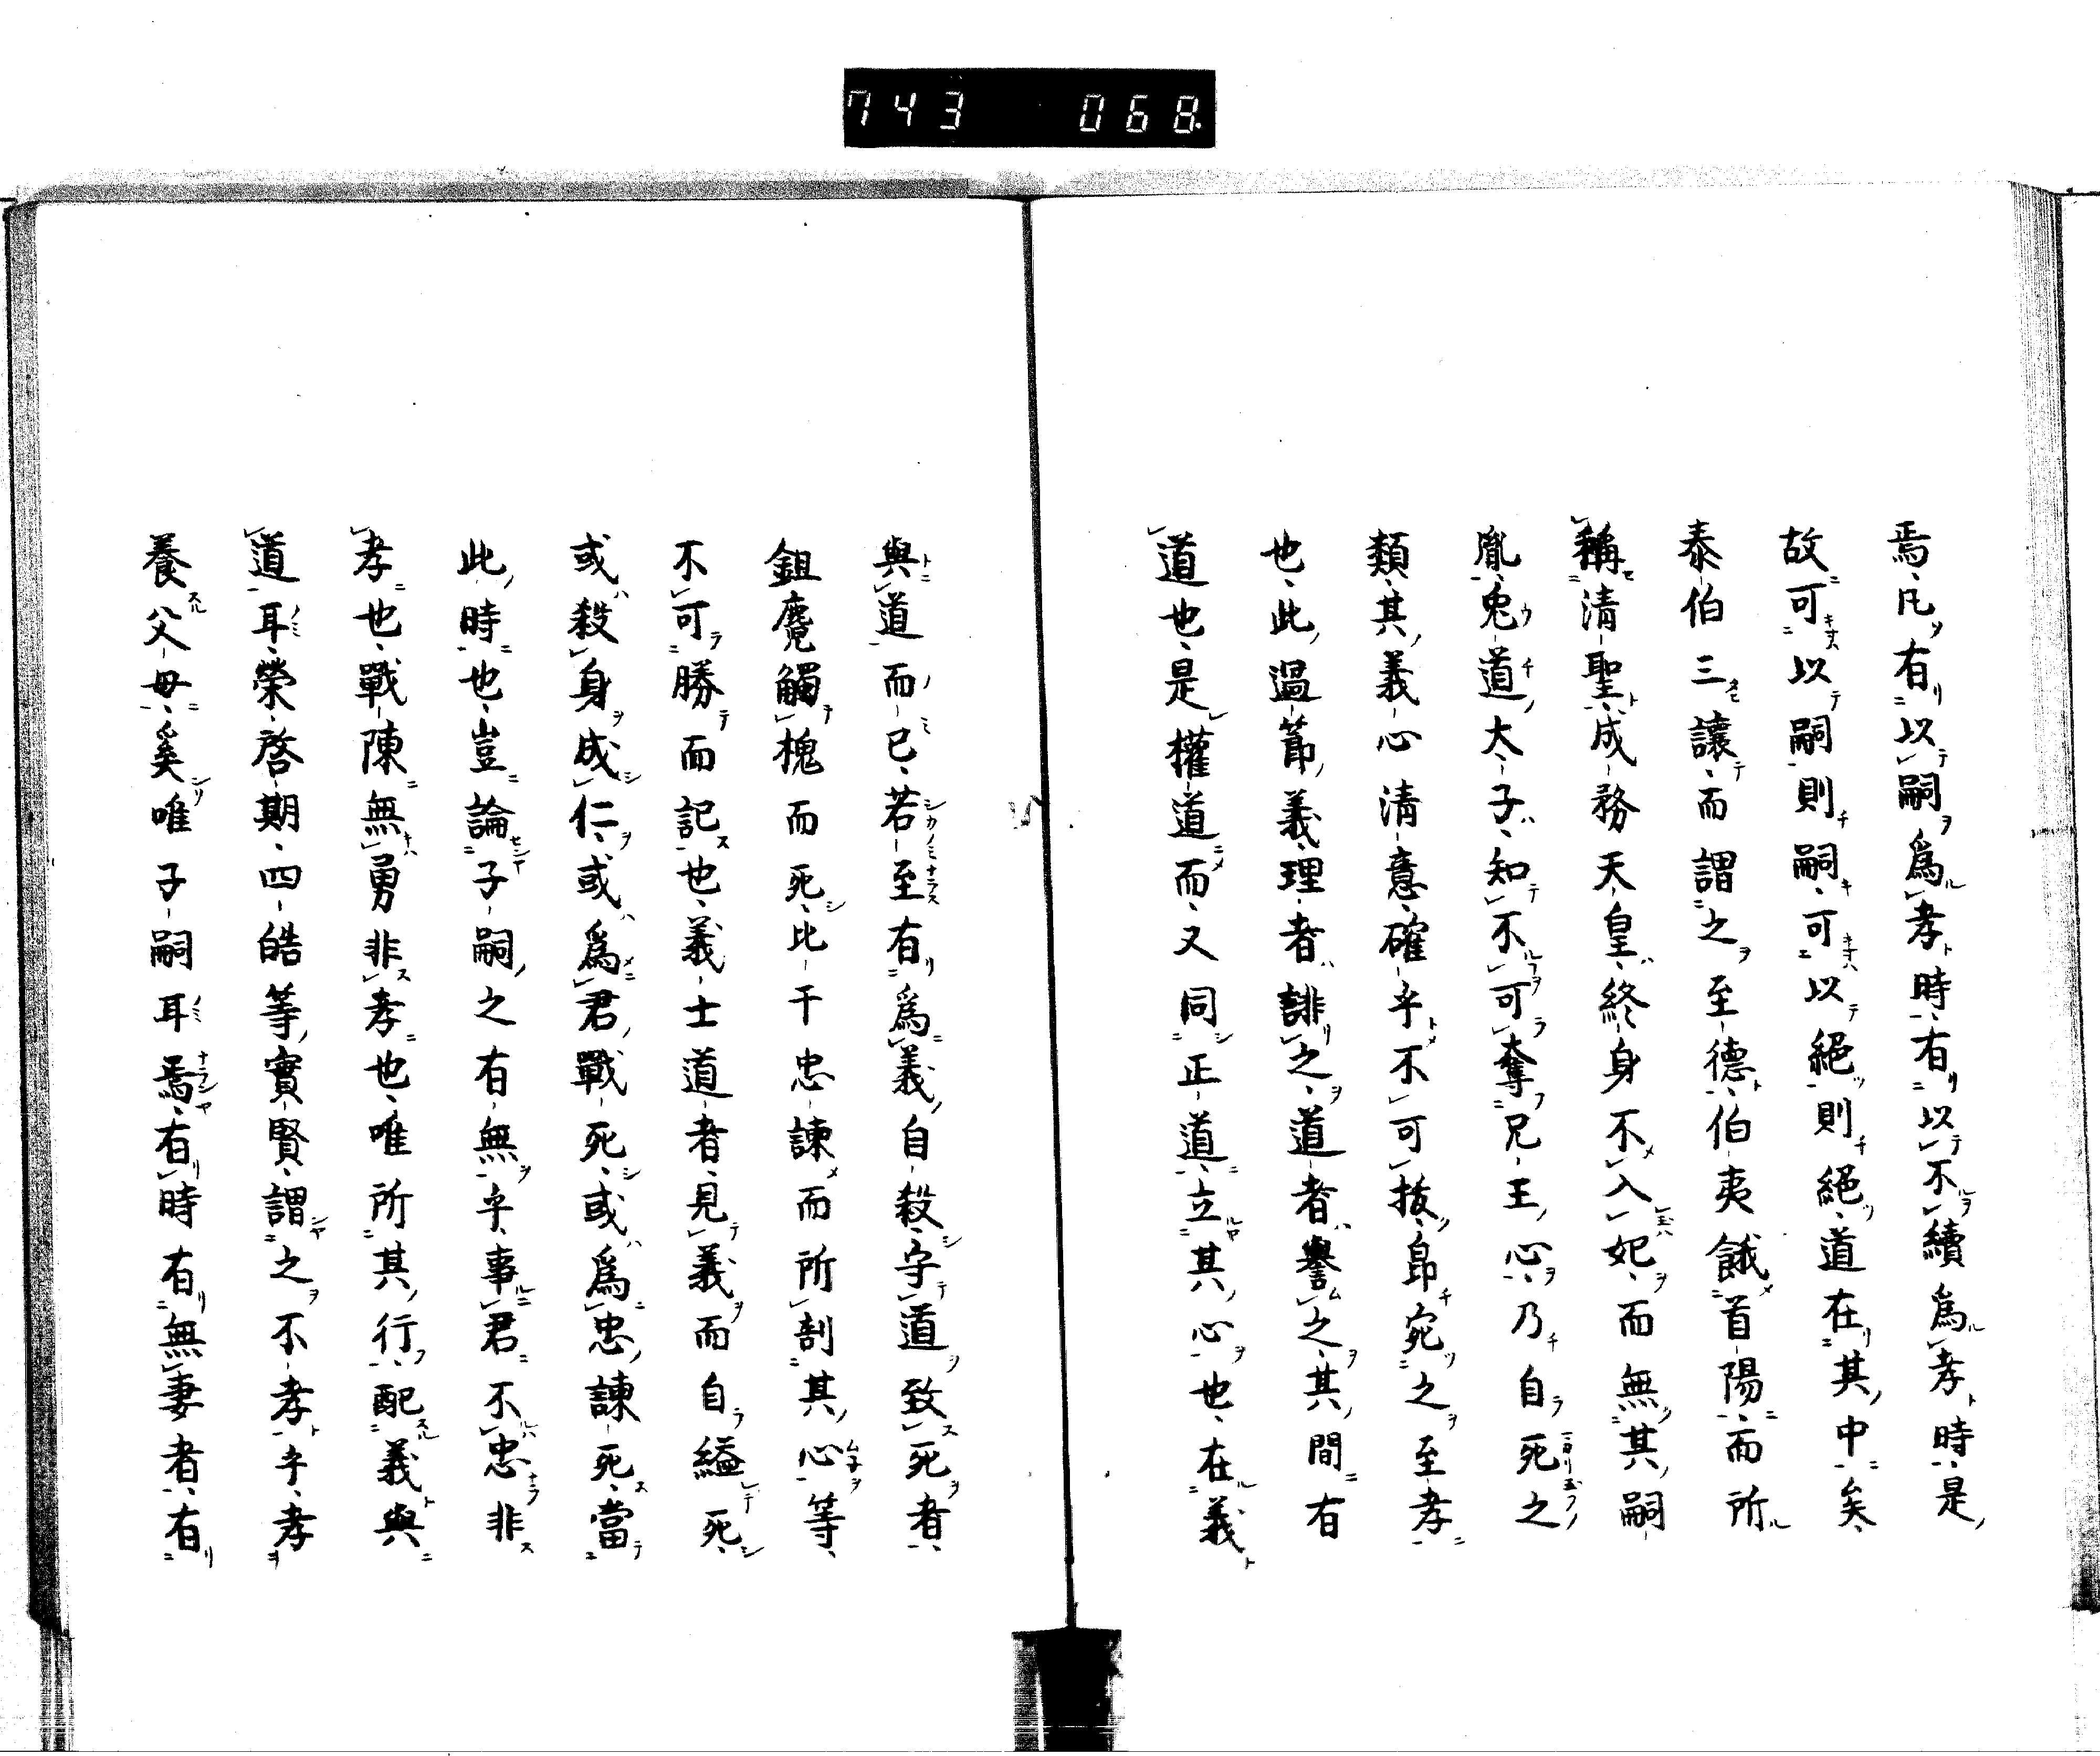 743 068
焉、凡有以嗣爲孝時、有以不續爲孝時、是
故可以嗣則嗣、可以絕則絕、道在其中矣、
泰伯三讓、而謂之至德、伯夷餓首陽、而所
稱清聖、成務天皇、終身不入妃、而無其嗣
胤、兔道太子、知不可奪兄王心、乃自死之
類、其義心清意、確乎不可拔、皍宛之至孝
也、此過節、義理者誹之、道者譽之、其間有
道也、是權道而、又同正道、立其心也、在義
與道而已、若至有爲義自殺、守道致死者、
鉏麑觸槐而死、比干忠諫而所剖其心等、
不可勝而記也、義士道者、見義而自縊死、
或殺身成仁、或爲君戰死、或爲忠諫死、當
此時也、豈論子嗣之有無乎、事君不忠非
孝也、戰陳無勇非孝也、唯所其行、配義與
道耳、榮啓期、四皓等、實賢、謂之不孝乎、孝
養父母、奚唯子嗣耳焉、有時有無妻者、有